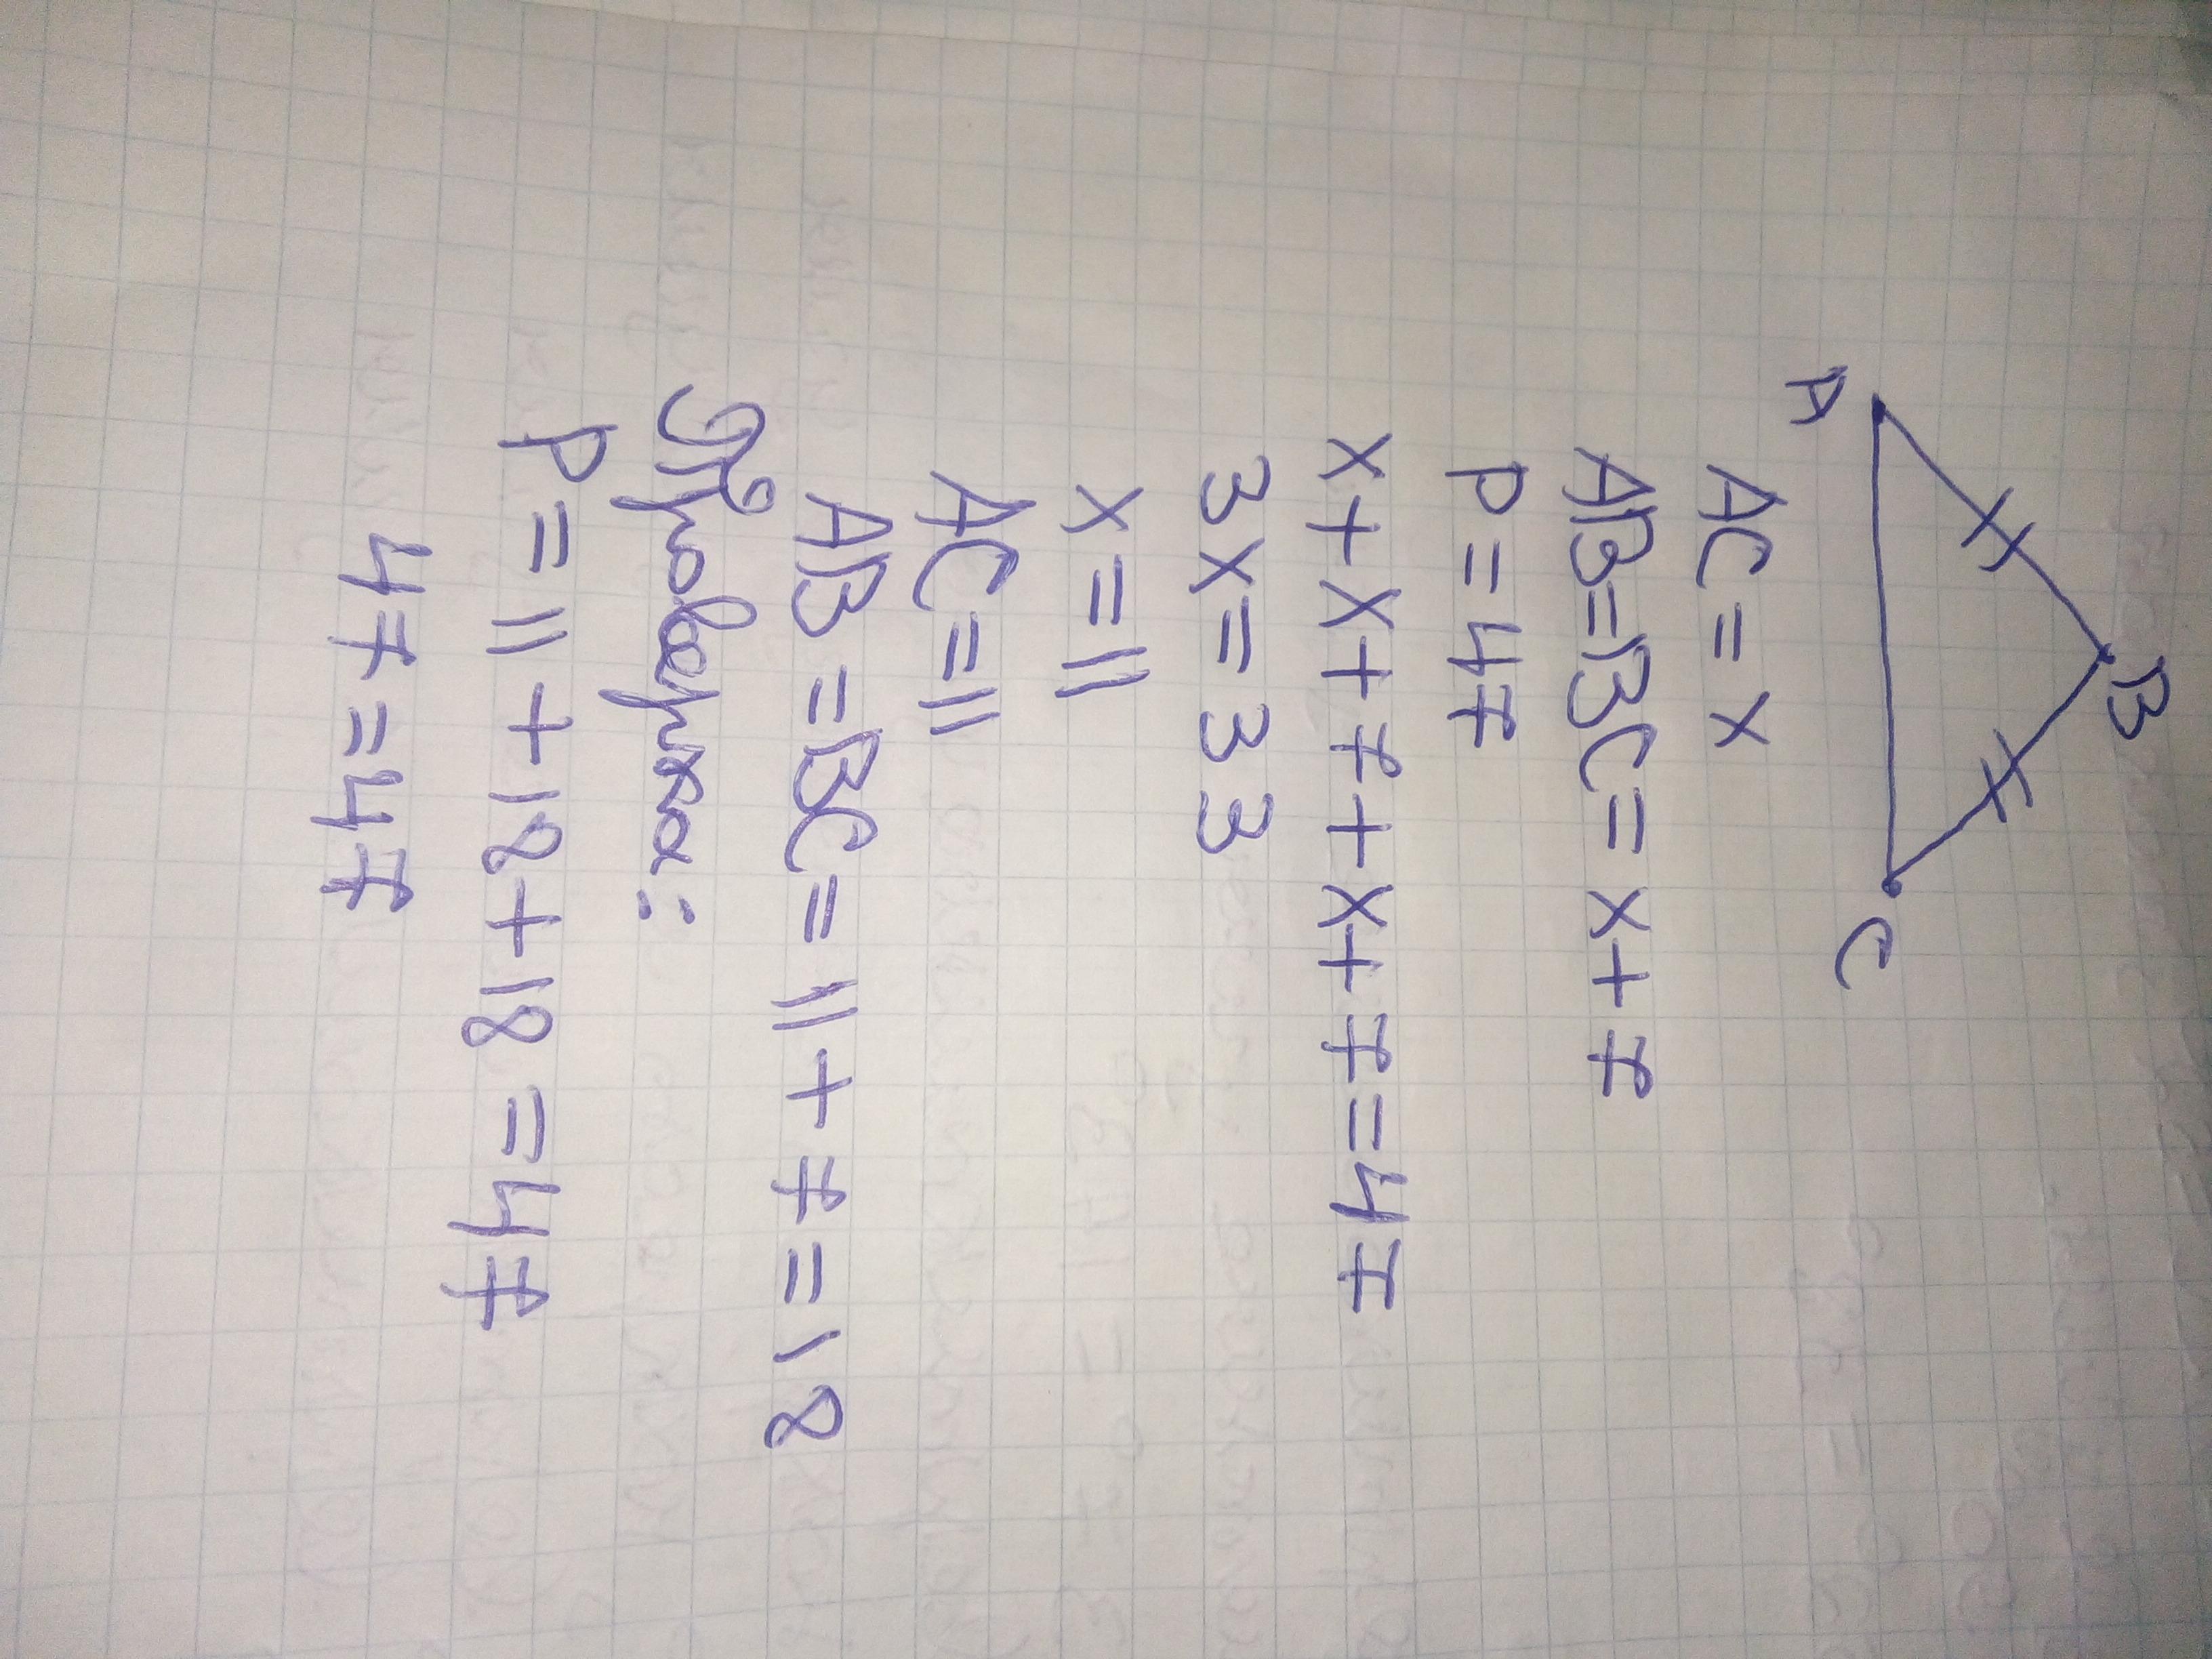 B
A C
AC = x
AB = BC = x + 7
P = 47
x + x + 7 + x + 7 = 47
3x = 33
x = 11
AC = 11
AB = BC = 11 + 7 = 18
Проверка:
P = 11 + 18 + 18 = 47
47 = 47